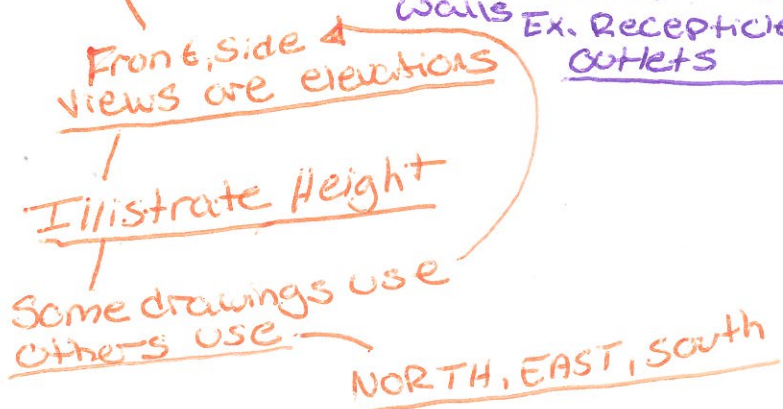 walls Ex. Recepticle
outlets
Front, side
views are elevations
Illistrate Height
Some drawings use
others use
NORTH, EAST, South